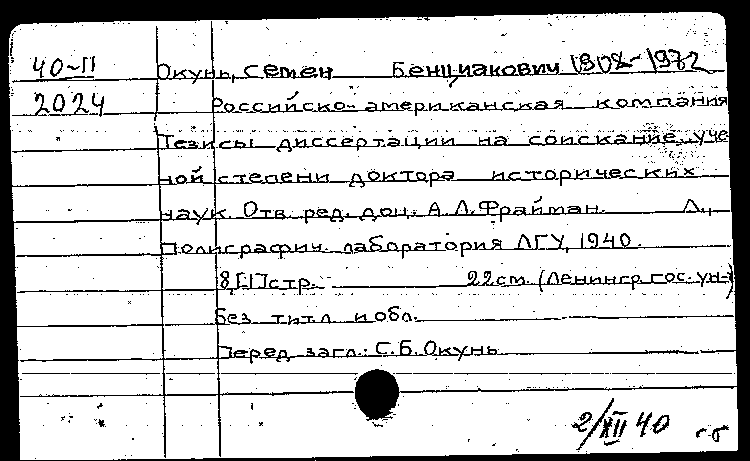 40-II Окунь, Семен Бенциакович 1908-1972
2024 Российско-американская компания
Тезисы диссертации на соискание уче
ной степени доктора исторических
наук. Отв. ред. доц. А.Л.Фрайман. Л.,
Полиграфич. лаборатория ЛГУ, 1940.
8,[1]стр. 22см. (Ленингр. гос. ун-т)
Без титл и обл.
Перед загл.: С.Б.Окунь
2/XII 40 г-б